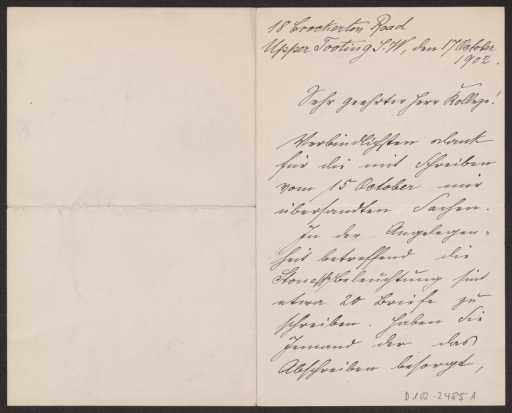 18 Crockerton Road
Upper Tooting S.W., den 17 October
1902.
Sehr geehrter Herr Kollege!
Verbindlichsten Dank
für die mit Schreiben
vom 15 October mir
übersandten Sachen.
In der Angelegen-
heit betreffend die
beleuchtung sind
etwa 20 Briefe zu
schreiben. Haben Sie
Jemand der das
Abschreiben besorgt,
D 102-2485 A